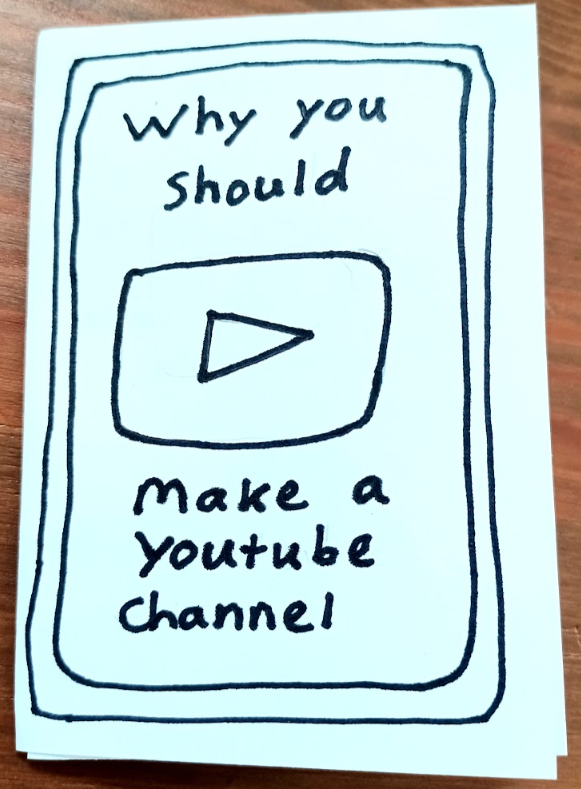 Why you
should
Make a
Youtube
Channel